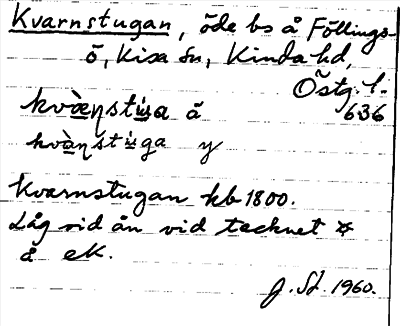 Kvarnstugan, öde bs å Föllings-
ö, Kisa sn, Kinda hd,
Östg. l.
kvæ̀ṇstu̇́a ä 636
kvàṇstu̇́ga y
Kvarnstugan kb 1800.
Låg vid ån vid tecknet ☼
å eK.
J. Sd. 1960.